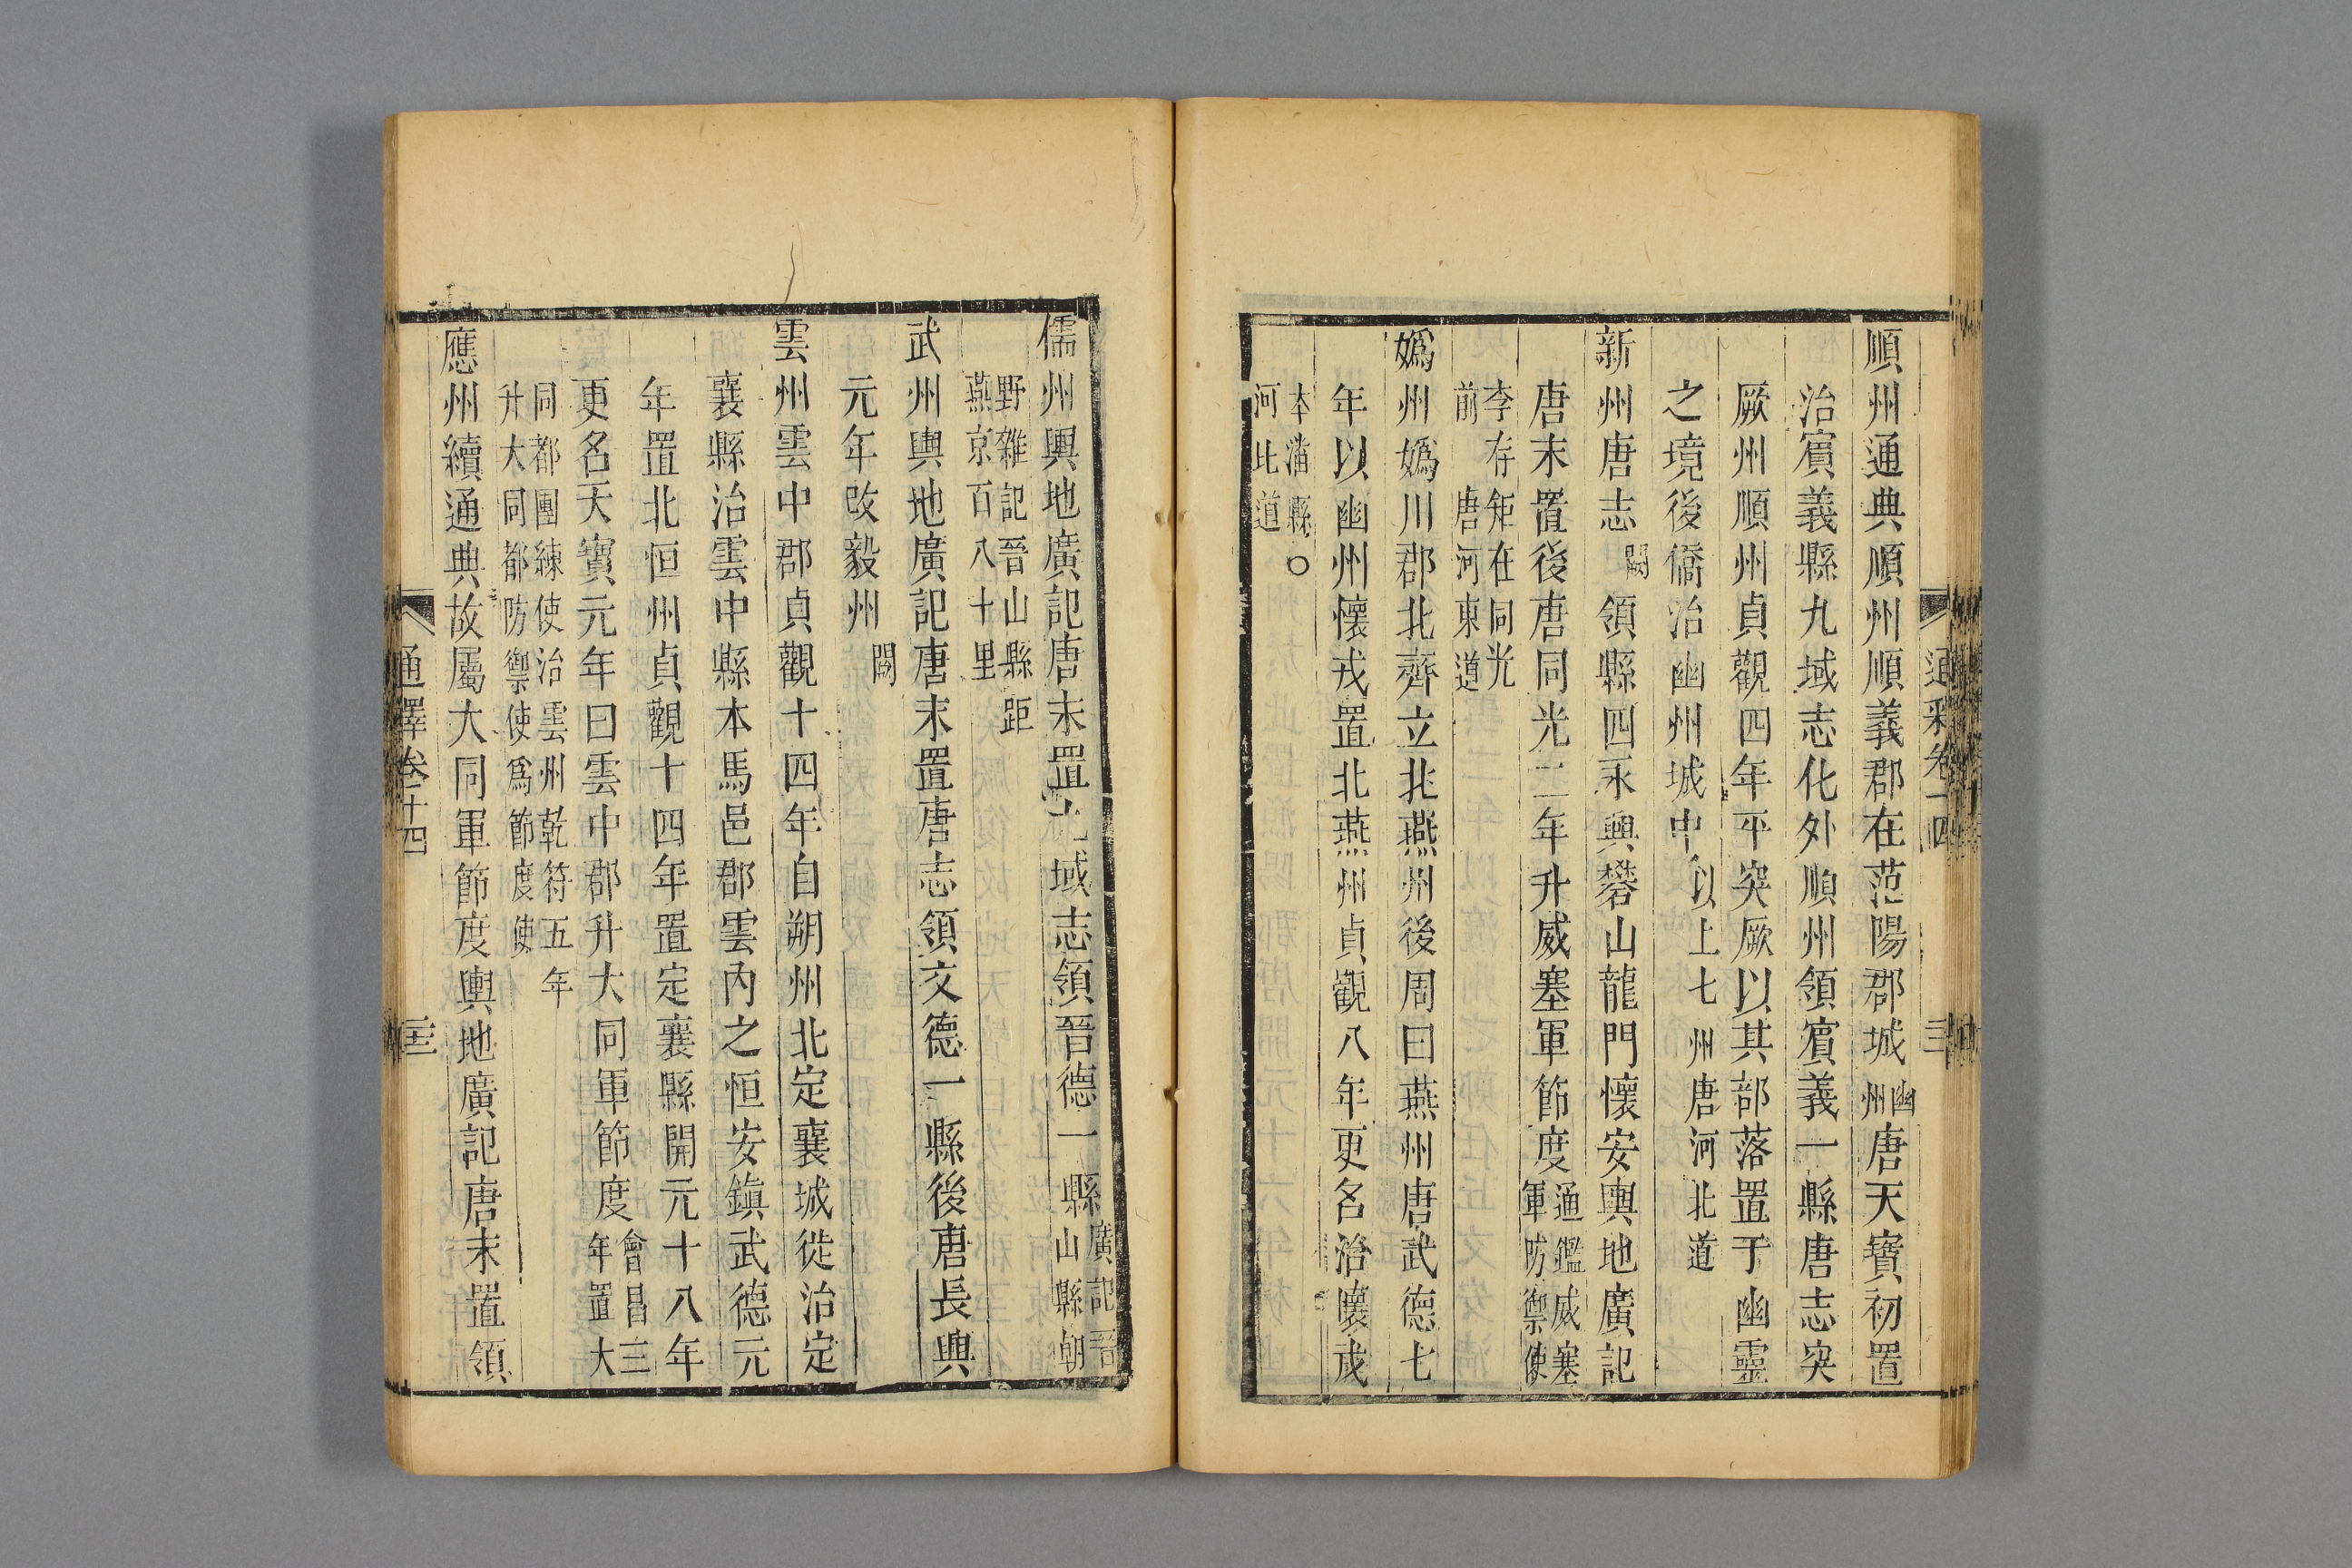 順州通典順州順義郡在范陽郡城幽州唐天寶初置
治賔義縣九域志化外順州領賔義一縣唐志突
厥州順州貞觀四年平突厥以其部落置于幽靈
之境後僑治幽州城中以上七州唐河北道
新州唐志闕領縣四永興礬山龍門懷安輿地廣記
唐末置後唐同光二年升威塞軍節度通鑑威塞軍防禦使
李存矩在同光前唐河東道
媯州媯川郡北齊立北燕州後周曰燕州唐武德七
年以幽州懷戎置北燕州貞觀八年更名治懷戎
本潘縣○河北道
儒州輿地廣記唐末置九域志領晉德一縣廣記晉山縣朝
野雜記晉山縣距燕京百八十里
武州輿地廣記唐末置唐志領文德一縣後唐長興
元年改毅州闕
雲州雲中郡貞觀十四年自朔州北定襄城徙治定
襄縣治雲中縣本馬邑郡雲內之恒安鎮武德元
年置北恒州貞觀十四年置定襄縣開元十八年
更名天寶元年曰雲中郡升大同軍節度會昌三年置大
同都團練使治雲州乾符五年升大同都防禦使爲節度使
應州續通典故屬大同軍節度輿地廣記唐末置領
通釋卷十四